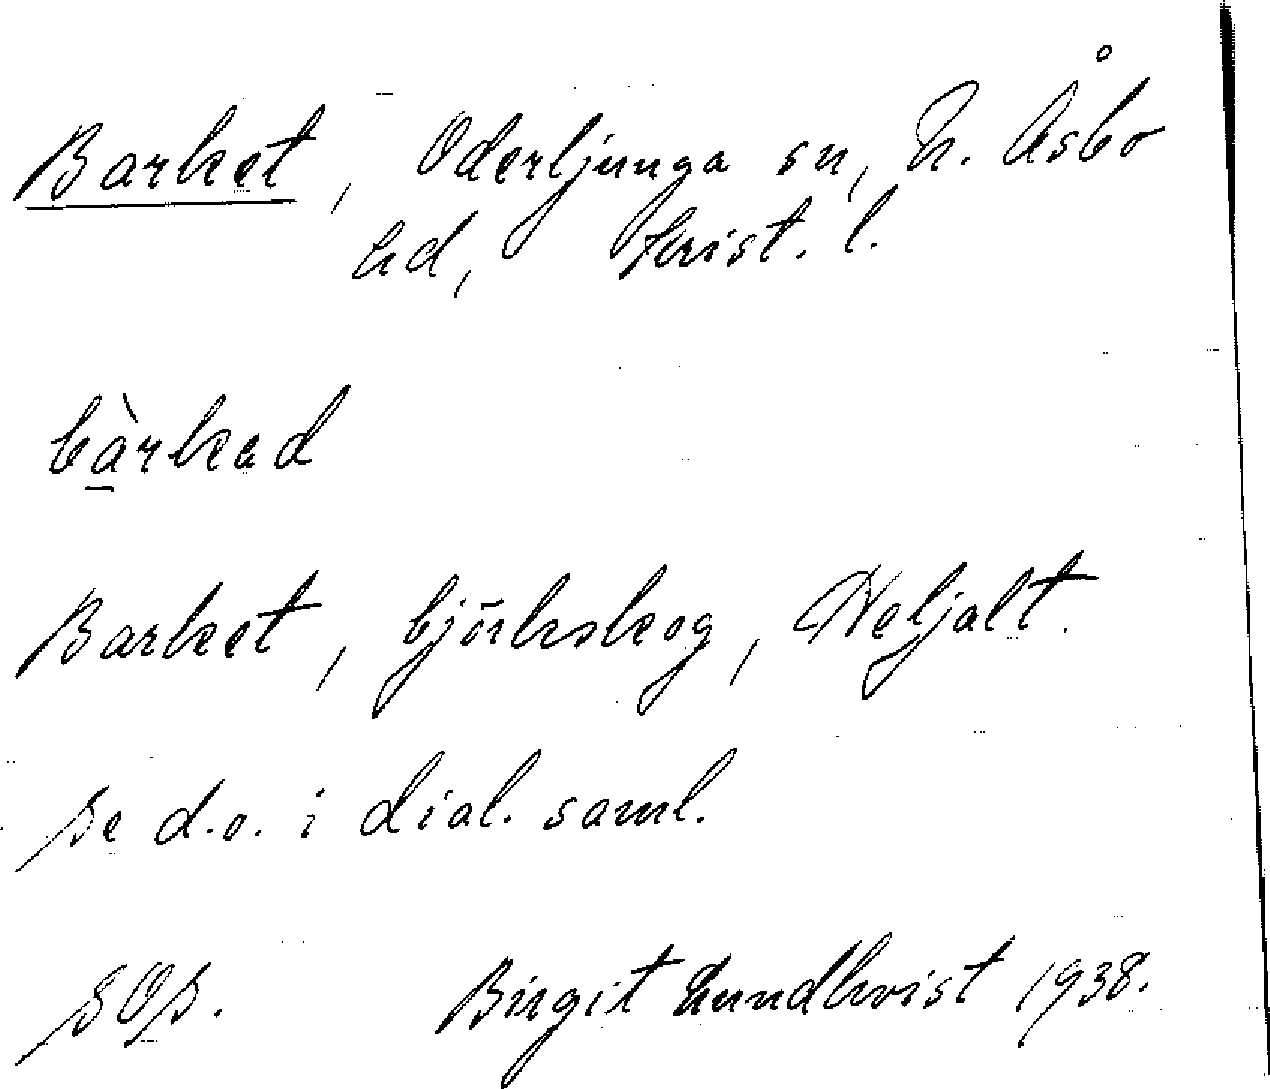 Barket, Oderljunga sn, N. Åsbo
hd, Krist. l.
bàrkad
Barket, björkskog, Neljalt.
Se d.o. i dial. saml.
SOS. Birgit Lundkvist 1938.